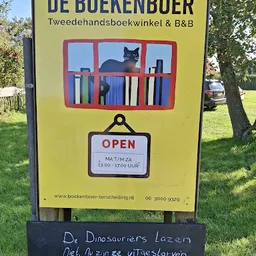 DE BOEKENBOER
Tweedehandsboekwinkel & B&B
OPEN
MA T/M ZA
13.00 - 17.00 UUR
www.boekenboer-terschelling.nl 06 3010 9320
De Dinosauriërs lazen
niet, nu zijn ze uitgestorven